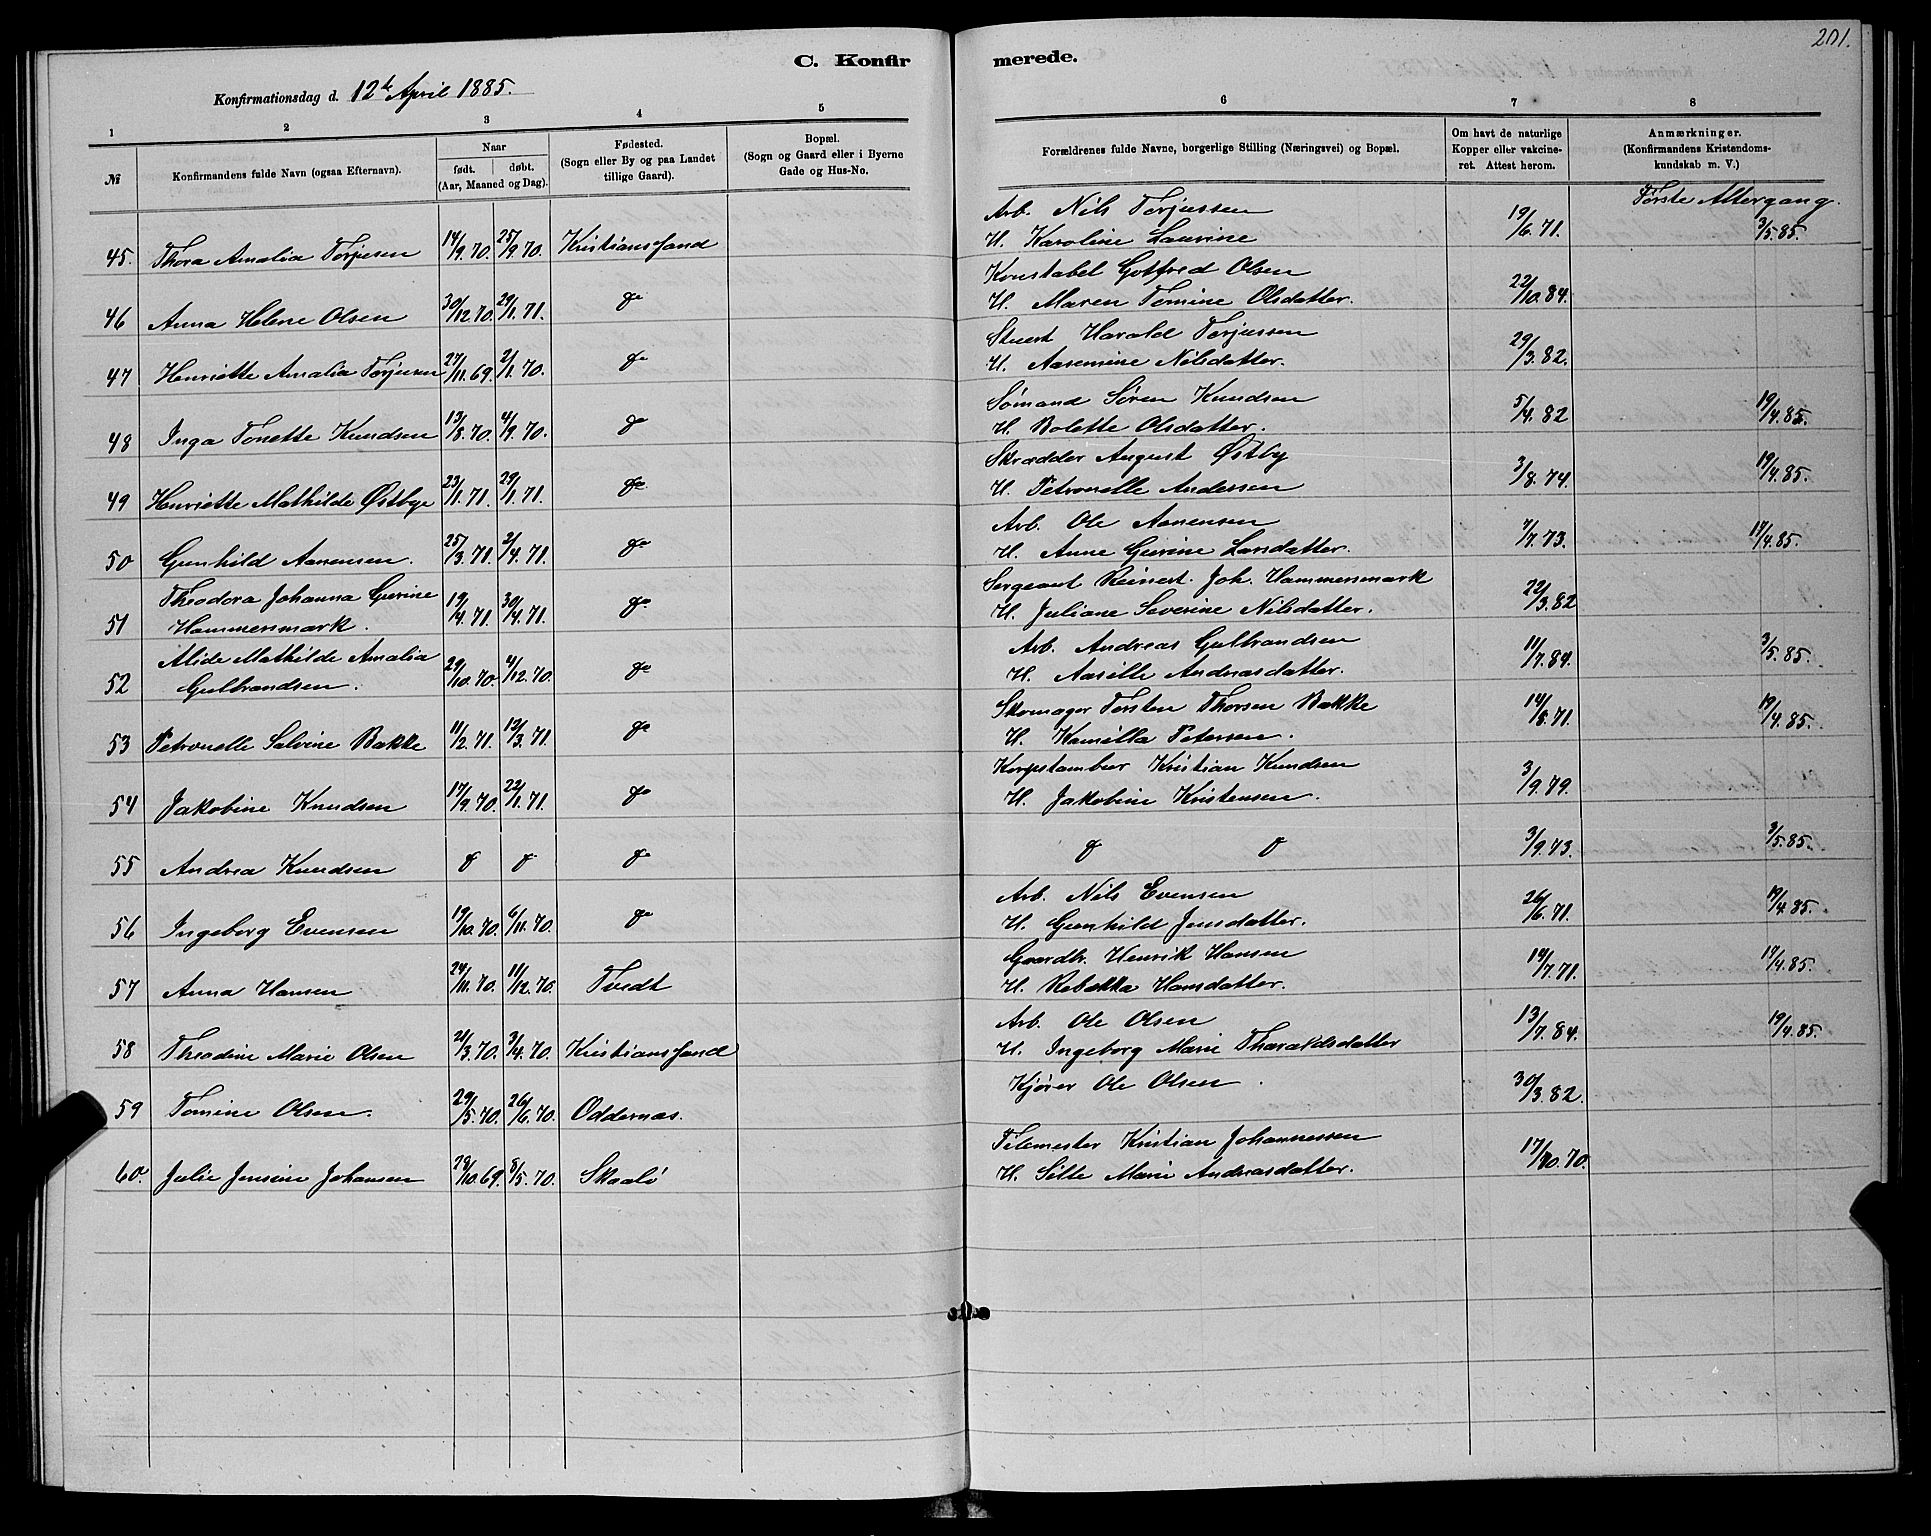 201.
C. Konfirmerede.
Konfirmationsdag d. 12te April 1885.
1 2 3 4 5 6 7 8
№
Konfirmandens fulde Navn (ogsaa Efternavn).
Naar
født. døbt.
(Aar, Maaned og Dag).
Fødested.
(Sogn eller By og paa Landet
tillige Gaard).
Bopæl.
(Sogn og Gaard eller i Byerne
Gade og Hus-No.
Forældrenes fulde Navne, borgerlige Stilling (Næringsvei) og Bopæl.
Om havt de naturlige
Kopper eller vakcine-
ret. Attest herom.
Anmærkninger.
(Konfirmandens Kristendoms-
kundskab m. V.)
Første Altergang.
Arb. Nils Terjussen
45. Thora Amalia Torjusen 14/9.70. 25/9.70. Kristianssand H. Karoline Laurine 19/6.71. 3/5.85.
Konstabel Gotfred Olsen
46 Anna Helene Olsen 30/12.70. 29/1.71. do H. Maren Tomine Olsdatter. 22/10.84.
Stuert Harald Terjussen
47 Henriette Amalia Torjusen 27/11.69. 2/1.70. do H. Aasemine Nilsdatter. 29/3.82.
Sømand Søren Knudsen
48 Inga Tonette Knudsen 13/8.70. 4/9.70. do H. Bolette Olsdatter. 5/4.82 19/4.85.
Skrædder August Østby
49 Henriette Mathilde Østbye 23/1.71. 29/1.71. do H. Petronelle Andersen 3/8.74. 19/4.85.
Arb. Ole Aanensen
50 Gunhild Aanensen. 25/3.71. 2/4.71. do H. Anne Gurine Larsdatter. 7/7.73. 19/4.85.
Theodora Johanna Gurine Sergeant Reinert. Joh. Hammersmark
51 Hammersmark. 19/4.71. 30/4.71. do H. Juliane Severine Nilsdatter. 22/3.82
Alide Mathilde Amalia Arb. Andreas Gulbrandsen
52 Gulbrandsen. 29/10.70. 4/12.70. do H. Aasille Andreasdatter. 11/7.84. 3/5.85.
Skomager Torsten Thorsen Bakke
53 Petronelle Salvine Bakke 11/2.71. 12/3.71. do H. Kamilla Petersen. 14/8.71. 19/4.85.
Korpstambur Kristian Knudsen
54 Jakobine Knudsen 17/9.70. 22/1.71. do H. Jakobine Kristensen. 3/9.79.
55 Andrea Knudsen do do do do do 3/9.73. 3/5.85.
Arb. Nils Evensen
56 Ingeborg Evensen 19/10.70. 6/11.70. do H. Gunhild Jensdatter. 26/6.71. 19/4.85.
Gaardbr. Henrik Hansen
57 Anna Hansen 24/11.70. 11/12.70. Tvedt H. Rebekka Hansdatter. 14/7.71. 19/4.85.
Arb. Ole Olsen
58 Theodine Marie Olsen 21/3.70. 3/4.70. Kristianssand H. Ingeborg Marie Tharaldsdatter 13/7.84. 19/4.85.
Kjører Ole Olsen.
59 Tomine Olsen. 29/5.70. 26/6.70. Oddernæs. 30/3.82.
Filemester Kristian Johannessen
60. Julie Jensine Johansen 28/10.69. 8/5.70. Skaalø H. Silte Marie Andreasdatter. 17/10.70.